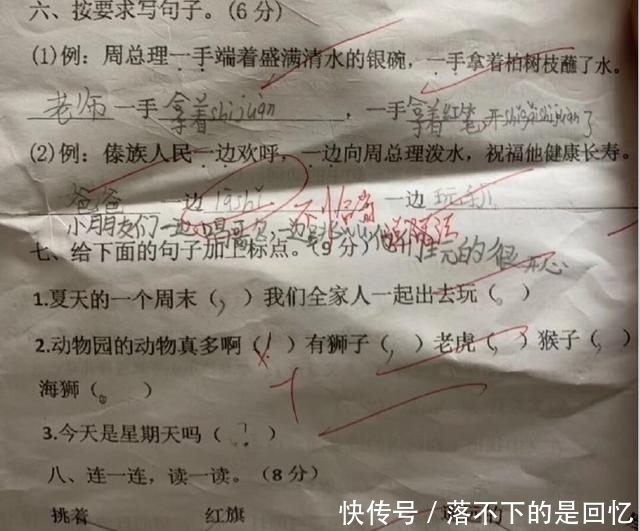 六、按要求写句子。(6分)
(1)例：周总理一手端着盛满清水的银碗，一手拿着柏树枝蘸了水。
老师一手拿着shijuàn，一手拿着红笔
(2)例：傣族人民一边欢呼，一边向周总理泼水，祝福他健康长寿。
爸爸一边 不恰当 一边
小朋友们一边唱歌
七、给下面的句子加上标点。(9分)
1.夏天的一个周末（，）我们全家人一起出去玩（。）
2.动物园的动物真多啊（！）有狮子（，）老虎（，）猴子（，）
海狮（。）
3.今天是星期天吗（？）
八、连一连，读一读。（8分）
挑着 红旗
快传号／落不下的是回忆